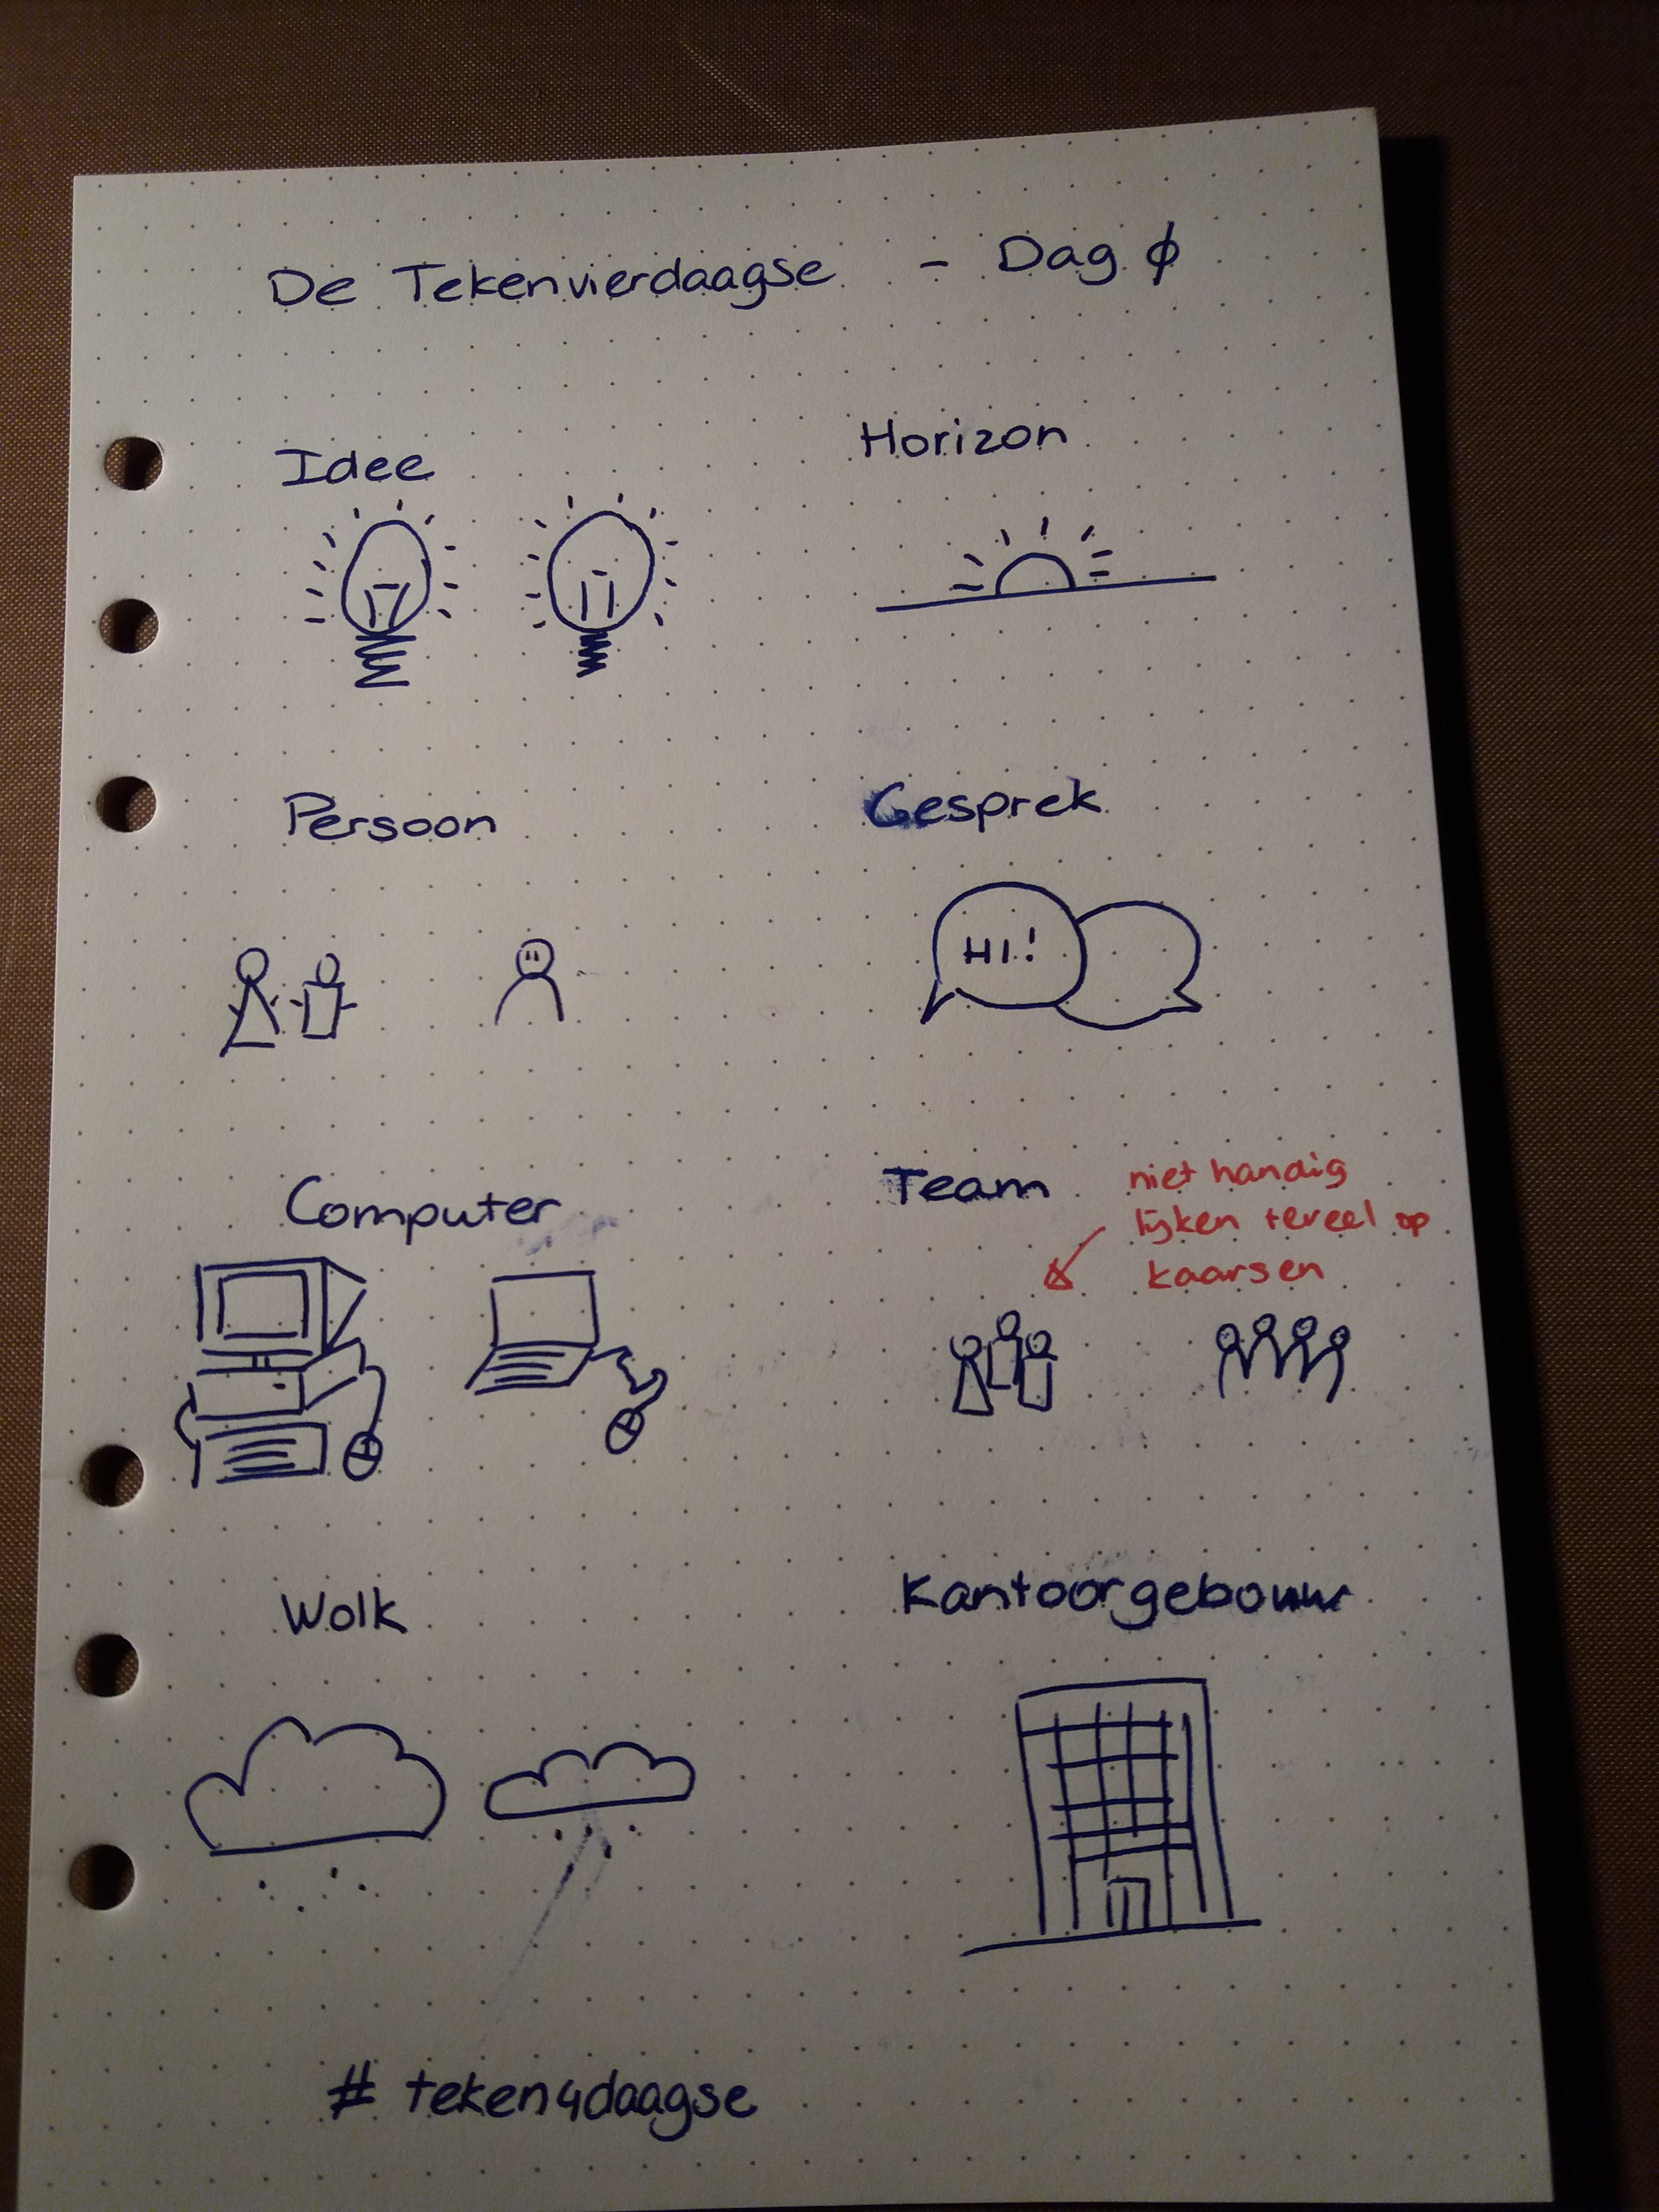 De Tekenvierdaagse - Dag ϕ
Idee
Horizon
Persoon
Gesprek
HI!
Computer
Team
niet handig
lijken teveel op
kaarsen
Wolk
Kantoorgebouw
# teken4daagse